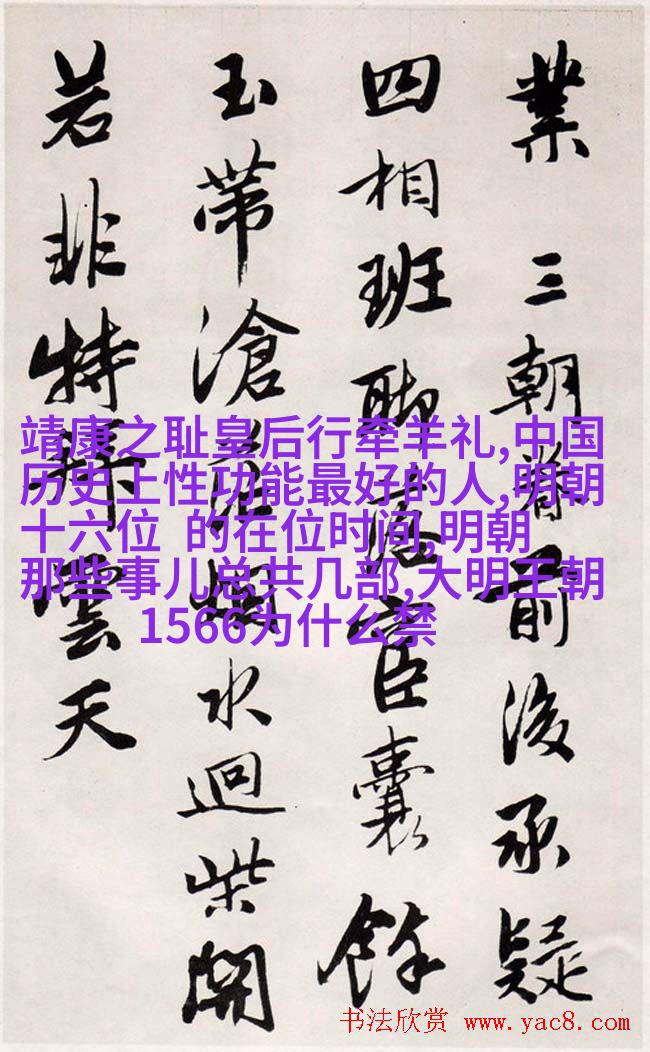 業 三朝眷前後承疑
四相班聊宦囊餘
玉帶滄烟水迴柴開
若非特拜雲天
靖康之耻皇后行牵羊礼,中国
历史上性功能最好的人,明朝
十六位 的在位时间,明朝
那些事儿总共几部,大明王朝
1566为什么禁
书法欣赏 www.yac8.com